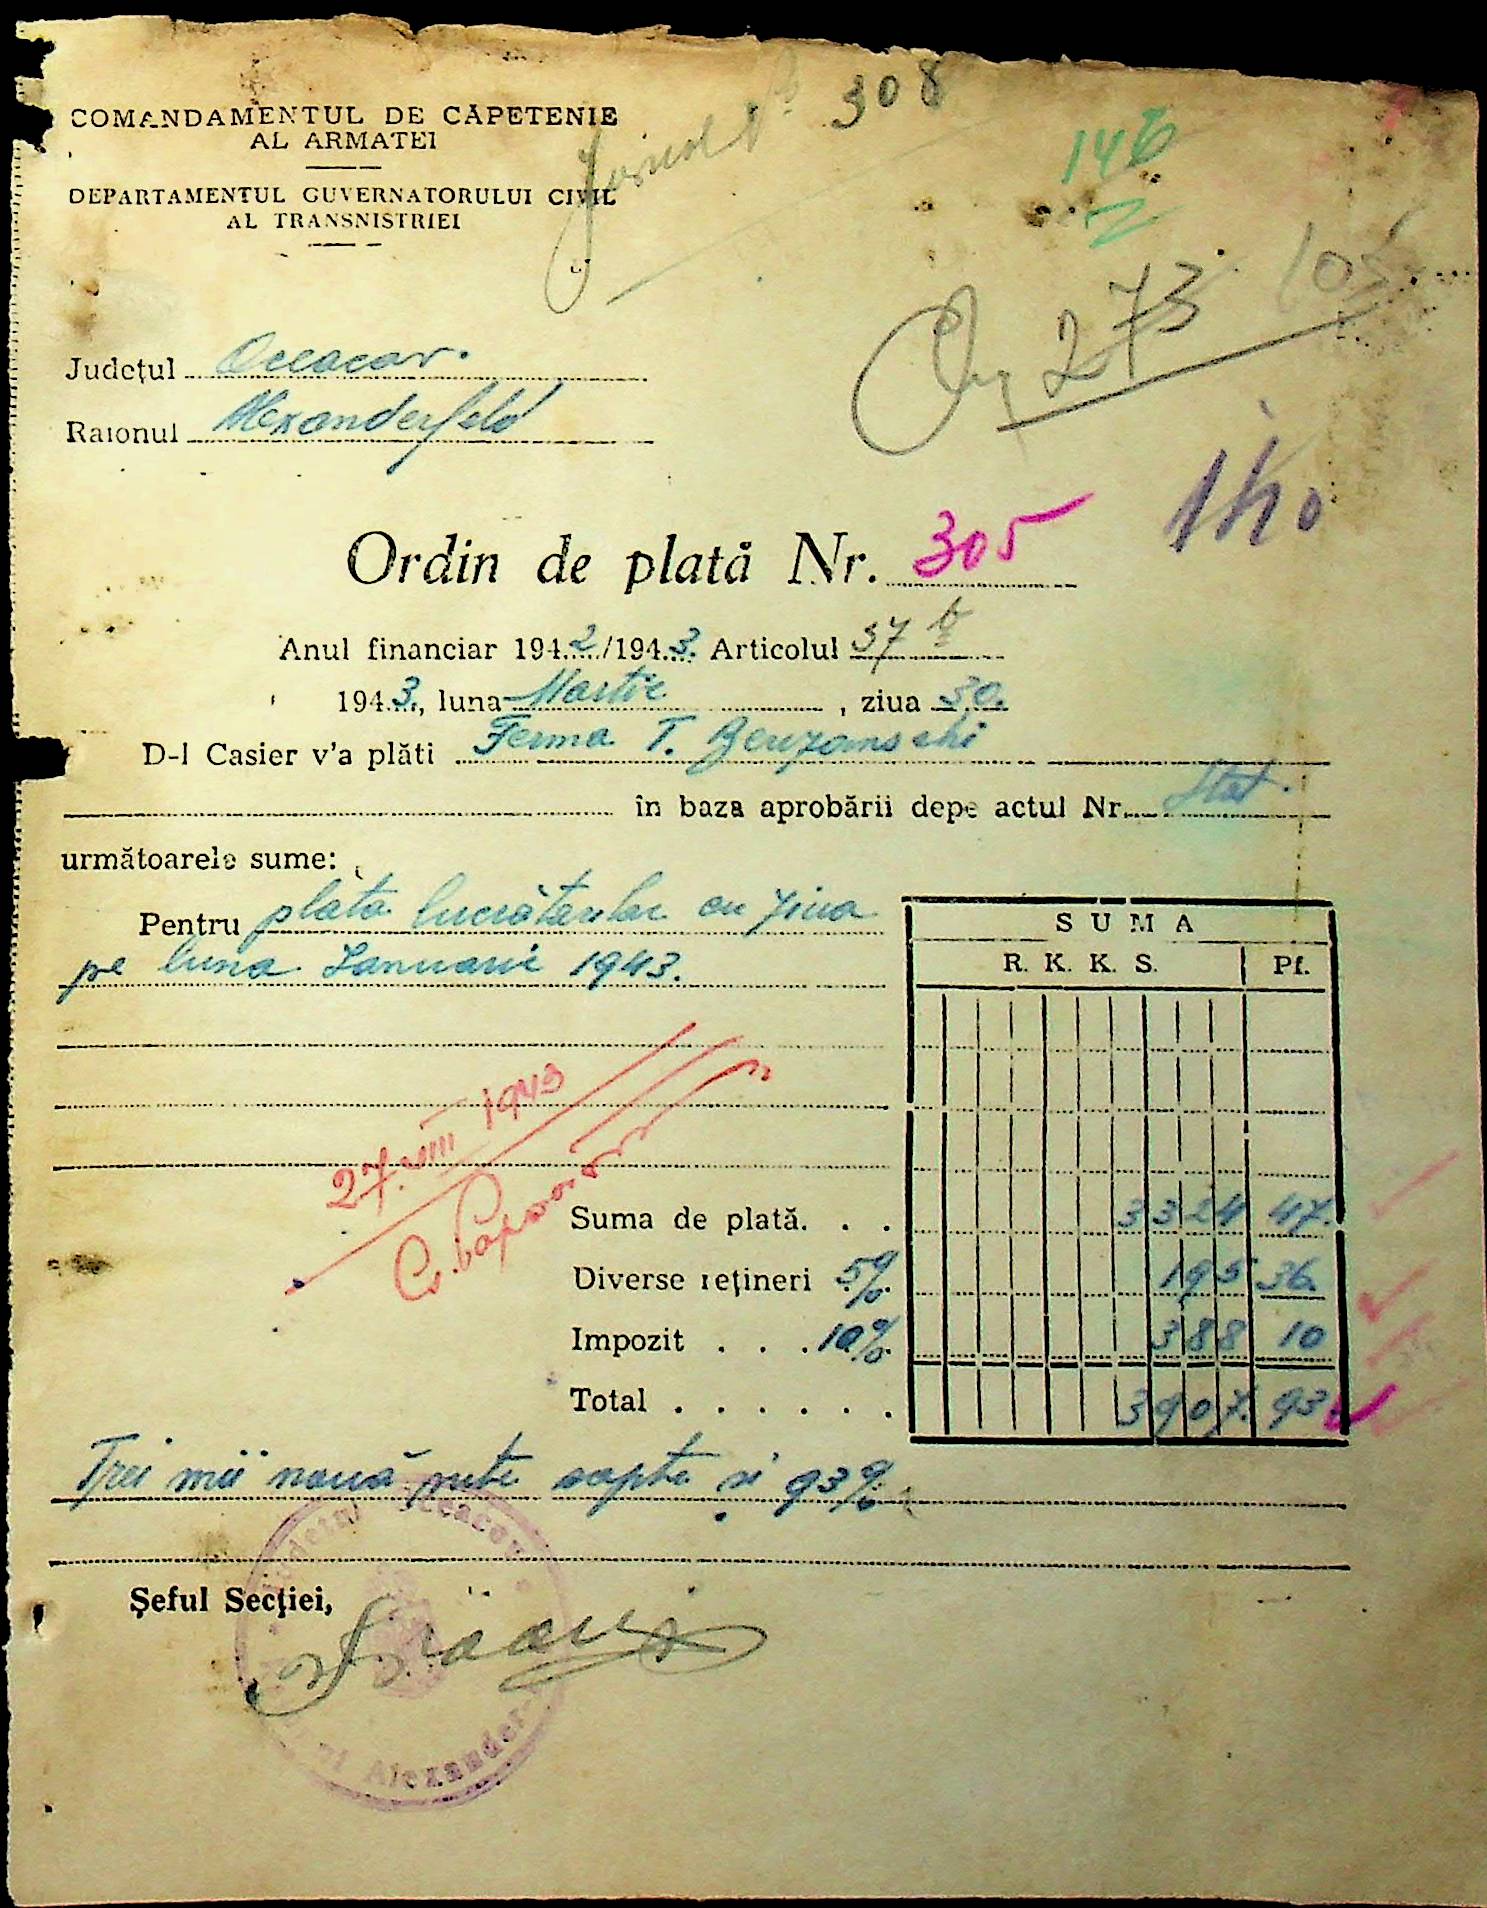 COMANDAMENTUL DE CĂPETENIE
AL ARMATEI
DEPARTAMENTUL GUVERNATORULUI CIVIL
AL TRANSNISTRIEI
308
146
273
105
Județul Oceacov.
Raionul Alexanderfeld
140
Ordin de plată Nr. 305
Anul financiar 1942/1943. Articolul 37 b
1943., luna Martie, ziua 30.
D-l Casier v'a plăti Ferma T.
în baza aprobării depe actul Nr. Stat.
următoarele sume:
Pentru plata lucrătorilor cu ziua
pe luna Ianuarie 1943.
SUMA
R. K. K. S. Pf.
27. VIII 1943
Suma de plată. . . 3324 47.
Diverse rețineri 5% 195 36.
Impozit . . . 10% 388 10
Total . . . . . . 3907. 93
Trei mii nouă sute șapte și 93%
Județul Oceacov
Șeful Secției,
Alexander